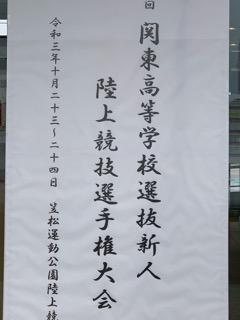 回 関東高等学校選抜新人
陸上競技選手権大会
令和三年十月二十三〜二十四日 笠松運動公園陸上競